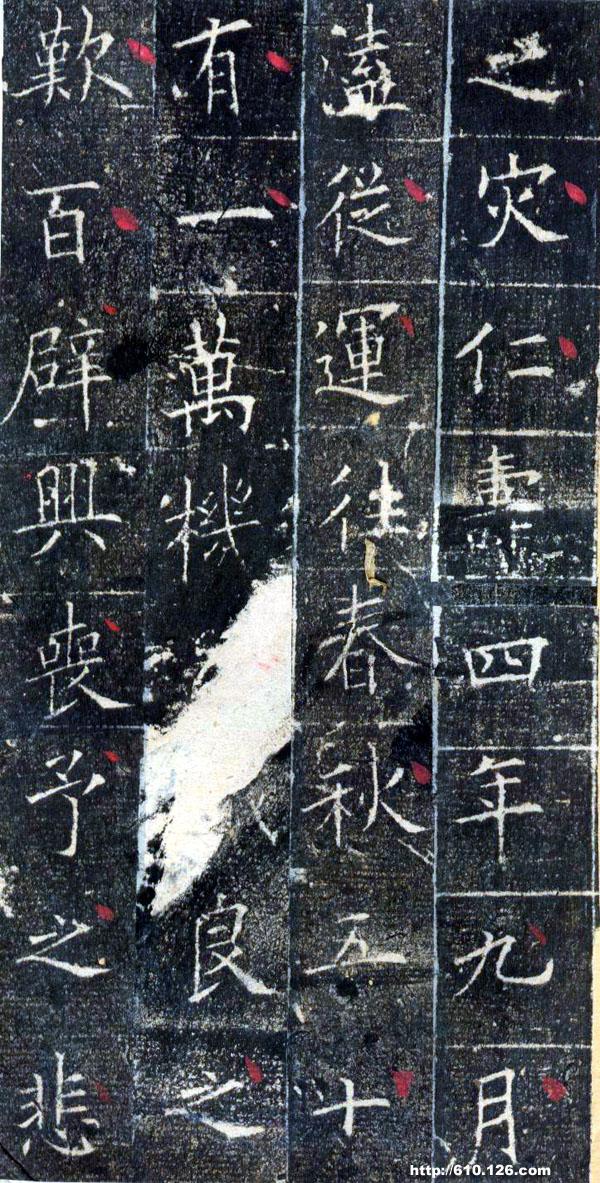 之灾仁壽四年九月
溘從運往春秋五十
有一萬機良之
歎百辟興喪予之悲
http://610.126.com